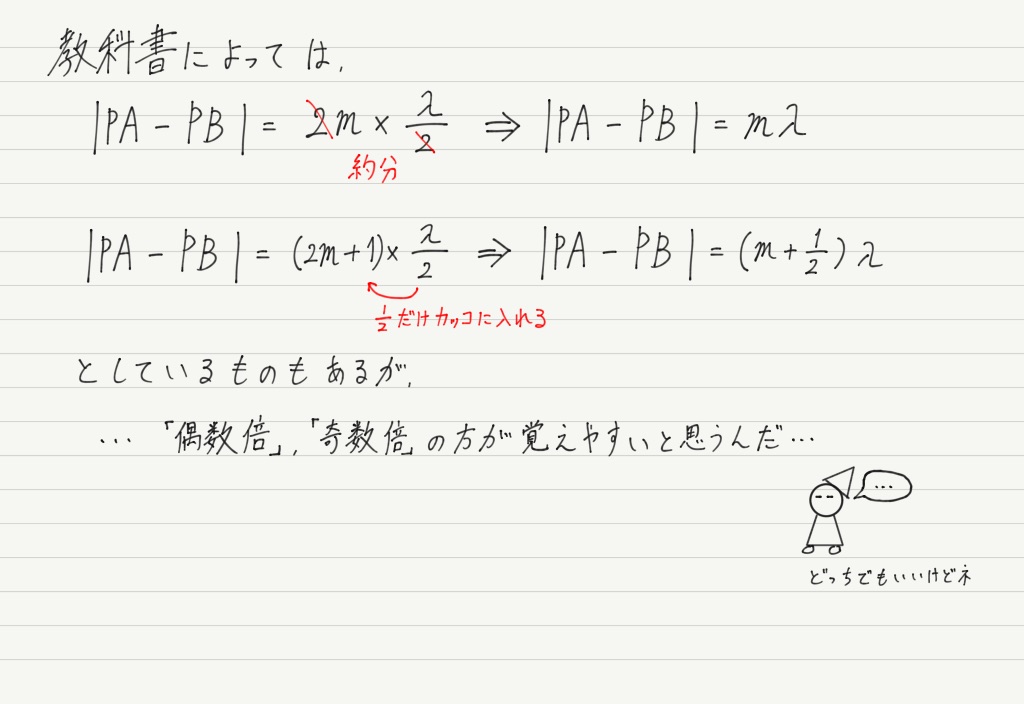 教科書によっては,
|PA - PB| = 2m × λ/2 ⇒ |PA - PB| = mλ
約分
|PA - PB| = (2m+1)× λ/2 ⇒ |PA - PB| = (m+1/2)λ
1/2だけカッコに入れる
としているものもあるが,
… 「偶数倍」,「奇数倍」の方が覚えやすいと思うんだ…
…
どっちでもいいけどネ